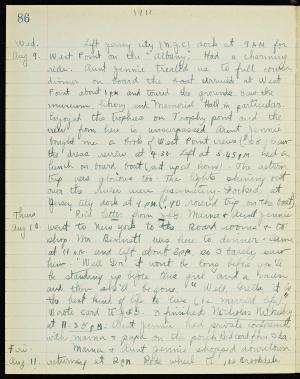 86
1911
Wed. Left Jersey City (N.J.C.) dock at 9 A.M. for
Aug 9. West Point on the "Albany". Had a charming
ride. Aunt Jennie treated us to full course
dinner on board the boat. Arrived at West
Point about 1 pm and toured the grounds. Saw the
museum, library and Memorial Hall in particular.
Enjoyed the trophies on Trophy point and the
view from here is unsurpassed. Aunt Jennie
bought me a book of West Point views Saw
the dress review at 4.30 Left at 5.45 pm. had a
lunch on board boat The return
trip was glorious too. The lights shining out
over the river were fascinating. Docked at
Jersey City dock at 9 pm. round trip on the boat
Thurs Rec'd letter from Mama & Aunt Jennie
Aug 10. went to New York to the Board rooms & to
shop. Mr. Bennett was here to dinner - came
at 11 a.m. and left about 3 pm so I barely saw
him. "Well it won't be long before you'll
be standing up before this girl and a
and then she'd be gone." "Well, it is
the best kind of life to live (i.e. married life)."
Wrote card to I finished Nicholas Nickleby
at Aunt Jennie had private conference
with mama & papa on the porch
Fri. Mama & Aunt Jennie shopped downtown
Aug 11. returning at 2 pm. Rode wheel to